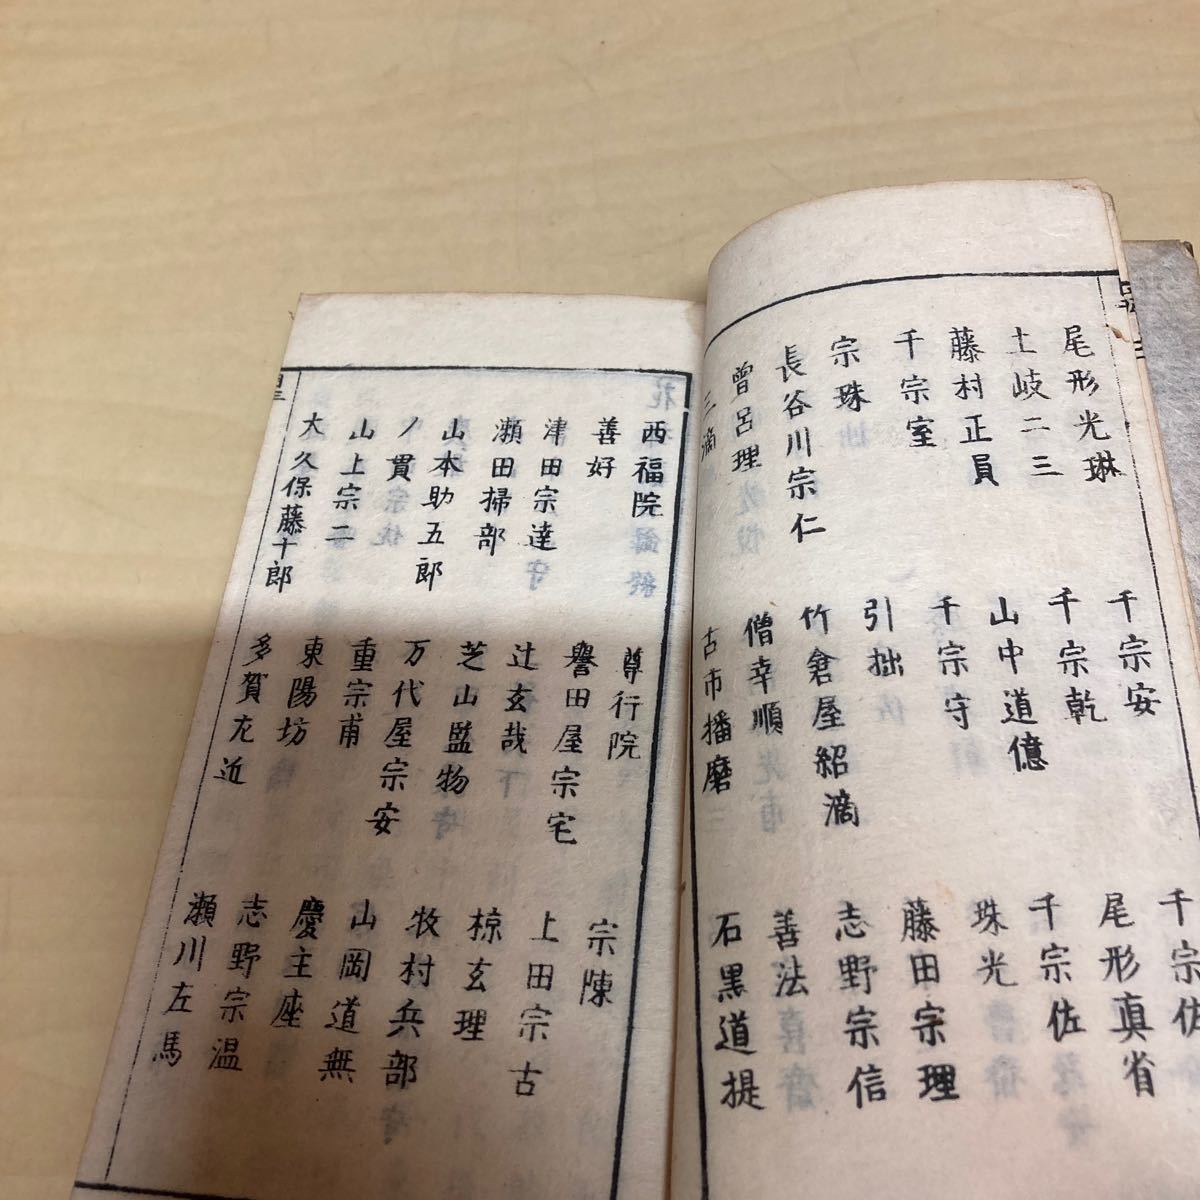 尾形光琳
土岐二三
藤村正員
千宗室
宗珠
長谷川宗仁
曽呂理
三滴
千宗安
千宗乾
山中道億
千宗守
引拙
竹倉屋紹滴
僧幸順
古市播磨
千宗佐
尾形真省
千宗佐
珠光
藤田宗理
志野宗信
善法
石黒道提
西福院
善好
津田宗達
瀬田掃部
山本助五郎
ノ貫
山上宗二
大久保藤十郎
尊行院
譽田屋宗宅
辻玄哉
芝山監物
万代屋宗安
重宗甫
東陽坊
多賀左近
宗陳
上田宗古
椋玄理
牧村兵部
山岡道無
慶主座
志野宗温
瀬川左馬